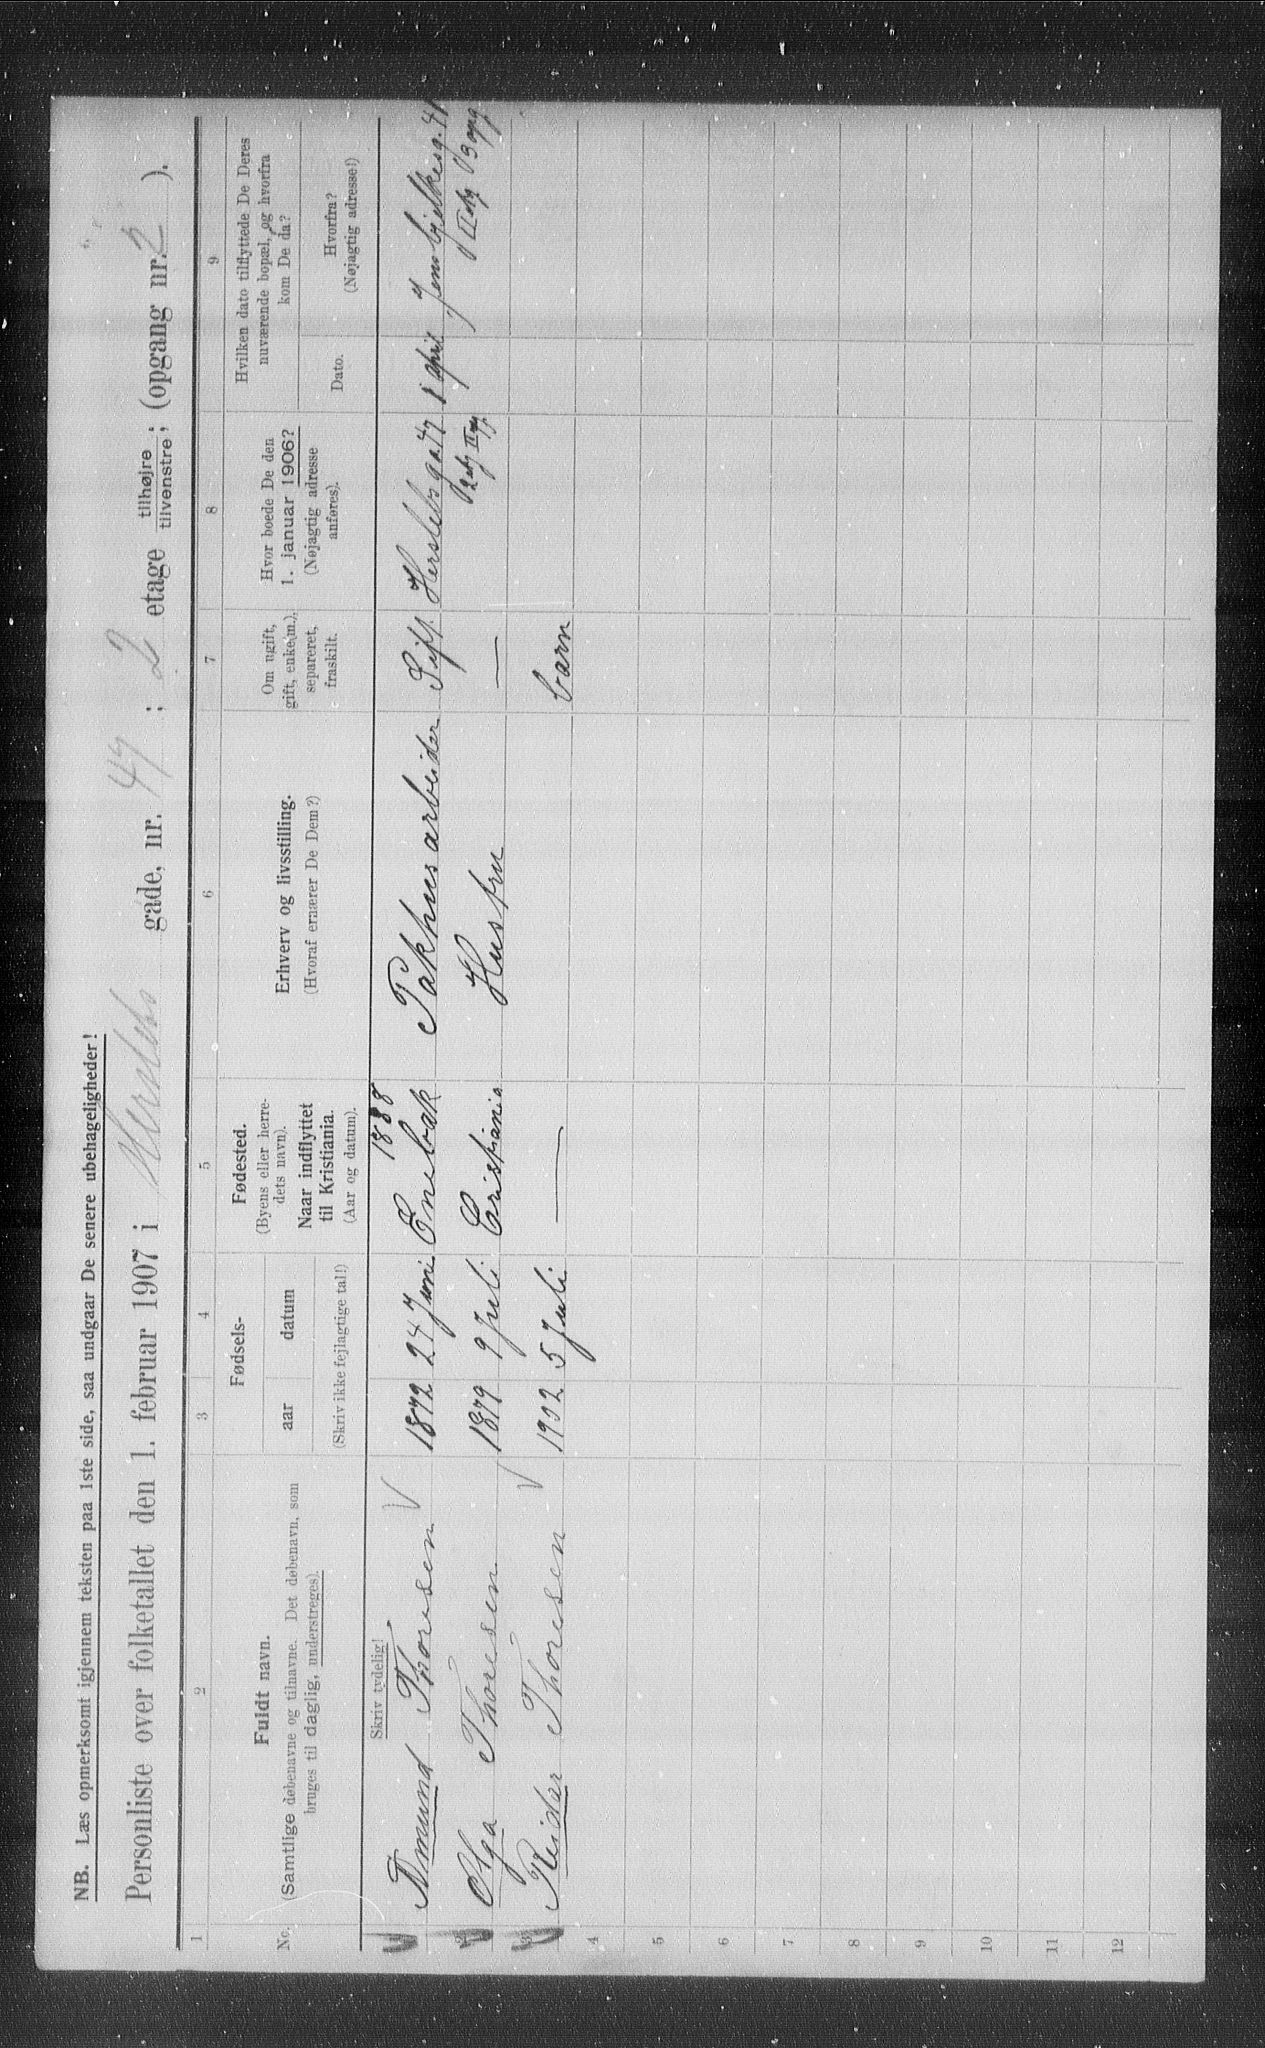 NB. Læs opmerksomt igjennem teksten paa 1ste side, saa undgaar De senere ubehageligheder!
Personliste over folketallet den 1. februar 1907 i Herslebs gade, nr. 47 ; 2 etage tilhøjre / tilvenstre ; (opgang nr. 2 ).
1 2 3 4 5 6 7 8 9
No.
Fuldt navn.
(Samtlige døbenavne og tilnavne. Det døbenavn, som
bruges til daglig, understreges).
Fødsels-
aar datum
(Skriv ikke fejlagtige tal!)
Fødested.
(Byens eller herre-
dets navn).
Naar indflyttet
til Kristiania.
(Aar og datum).
Erhverv og livsstilling.
(Hvoraf ernærer De Dem?)
Om ugift,
gift, enke(m.),
separeret,
fraskilt.
Hvor boede De den
1. januar 1906?
(Nøjagtig adresse
anføres).
Hvilken dato tilflyttede De Deres
nuværende bopæl, og hvorfra
kom De da?
Dato.
Hvorfra?
(Nøjagtig adresse!)
Skriv tydelig!
1888
Amund Thoresen 1872 24 Juni Enebak Pakhusarbeider Gift Herslebsga 47 1 april Jens bjelkesg. 41
2 Olga Thoresen 1879 9 Juli Cristiania Hustru — 2 etg II opg II etg 3 opg
3 Reidar Thoresen 1902 5 Juli — barn
4
5
6
7
8
9
10
11
12